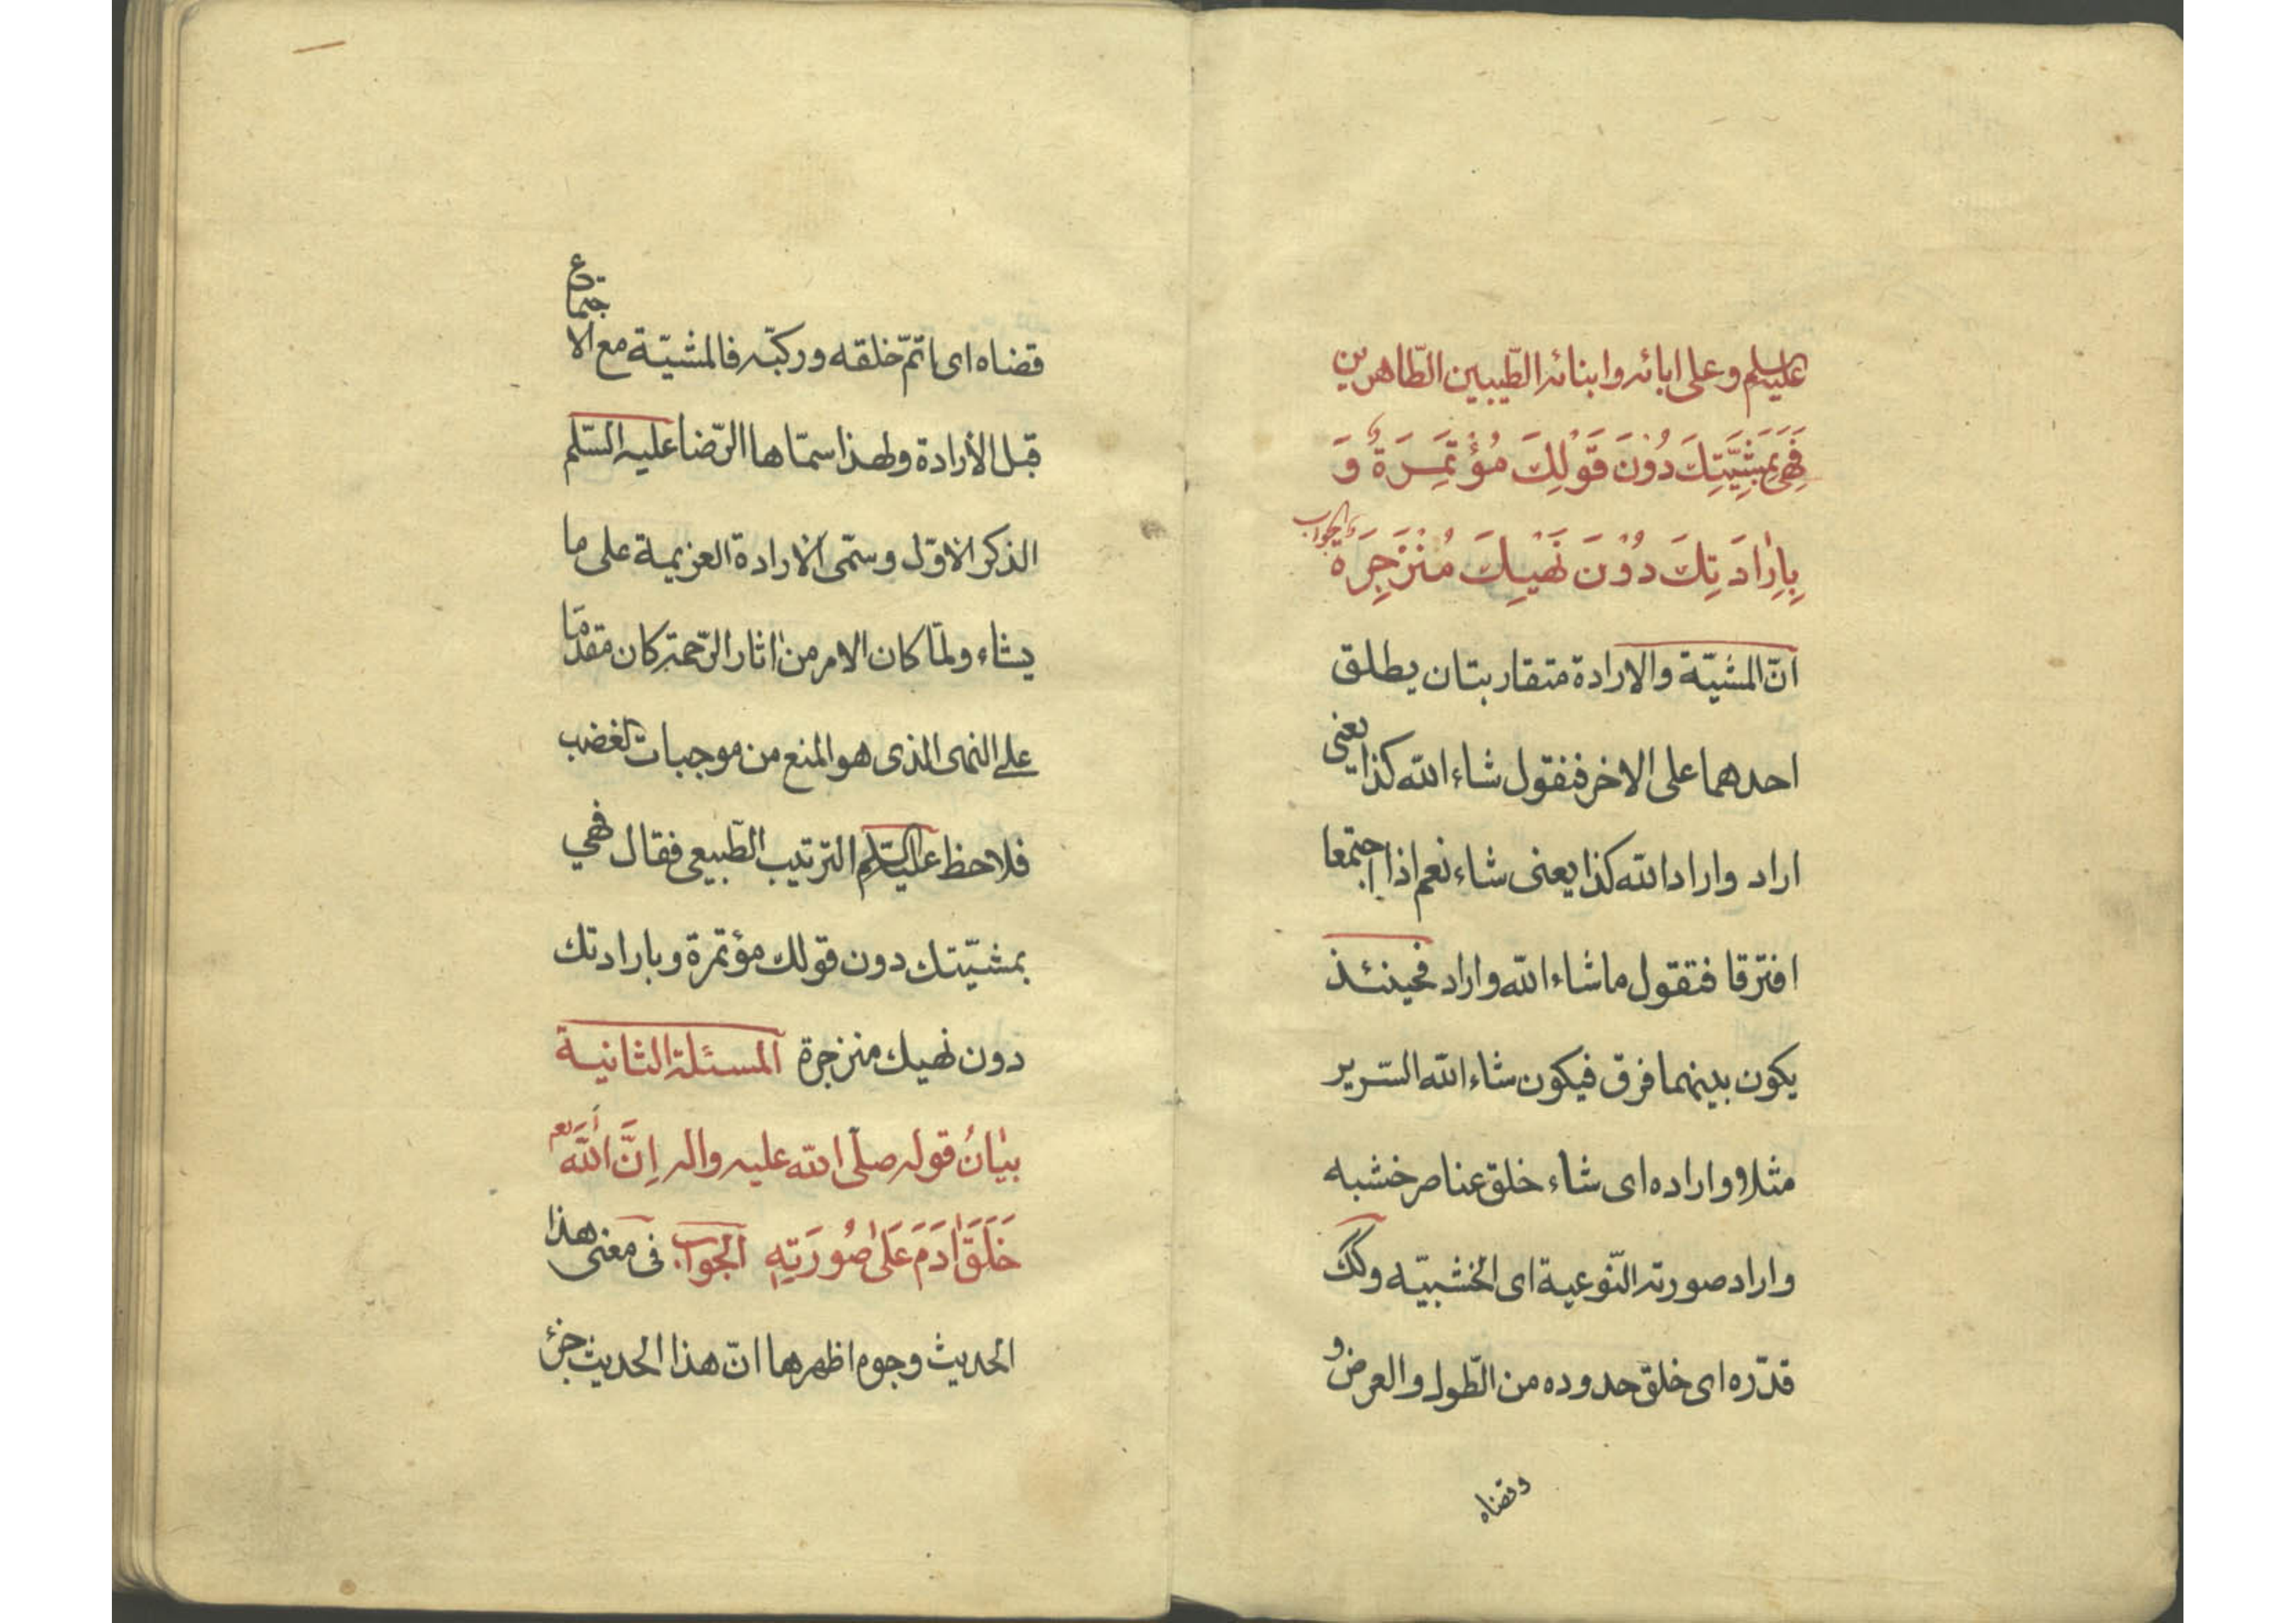 عليه السلم وعلى ابائه وابنائه الطّيبين الطّاهرين
فَهِيَ بِمَشِيَّتِكَ دُونَ قَوْلِكَ مُؤْتَمِرَةٌ وَ
بِاِرٰادَتِكَ دُوْنَ نَهْيِكَ مُنْزَجِرَةٌ الجواب
انّ المشيّة والارادة متقاربتان يطلق
احدهما على الاخر فنقول شاء الله كذا يعنى
اراد واراد الله كذا يعنى شاء نعم اذا اجتمعا
افترقا فتقول ما شاء الله واراد فحينئذ
يكون بينهما فرق فيكون شاء الله السّرير
مثلا واراده اى شاء خلق عناصر خشبه
واراد صورته النّوعية اى الخشبيّه وكك
قدّره اى خلق حدوده من الطّول والعرض و
وقضاه
قضاه اى اتمّ خلقه وركبّه فالمشيّة مع الاجتماع
قبل الأرادة ولهذا سمّاها الرّضا عليه السّلم
الذكر الاوّل وسمّى الارادة العزيمة على ما
يشاء ولمّا كان الامر من اثار الرّحمة كان مقدّما
على النهى الذى هو المنع من موجبات الغضب
فلاحظ عليه السّلم الترتيب الطّبيعى فقال فهي
بمشيّتك دون قولك مؤتمرة وبارادتك
دون نهيك منزجرة المسئلة الثانية
بيٰانُ قوله صلّى الله عليه واله اِنَّ اللهَ
خَلَقَ اٰدَمَ عَلىٰ صُورَتِهِ الجواب فى معنى هذا
الحديث وجوه اظهرها انّ هذا الحديث جزء